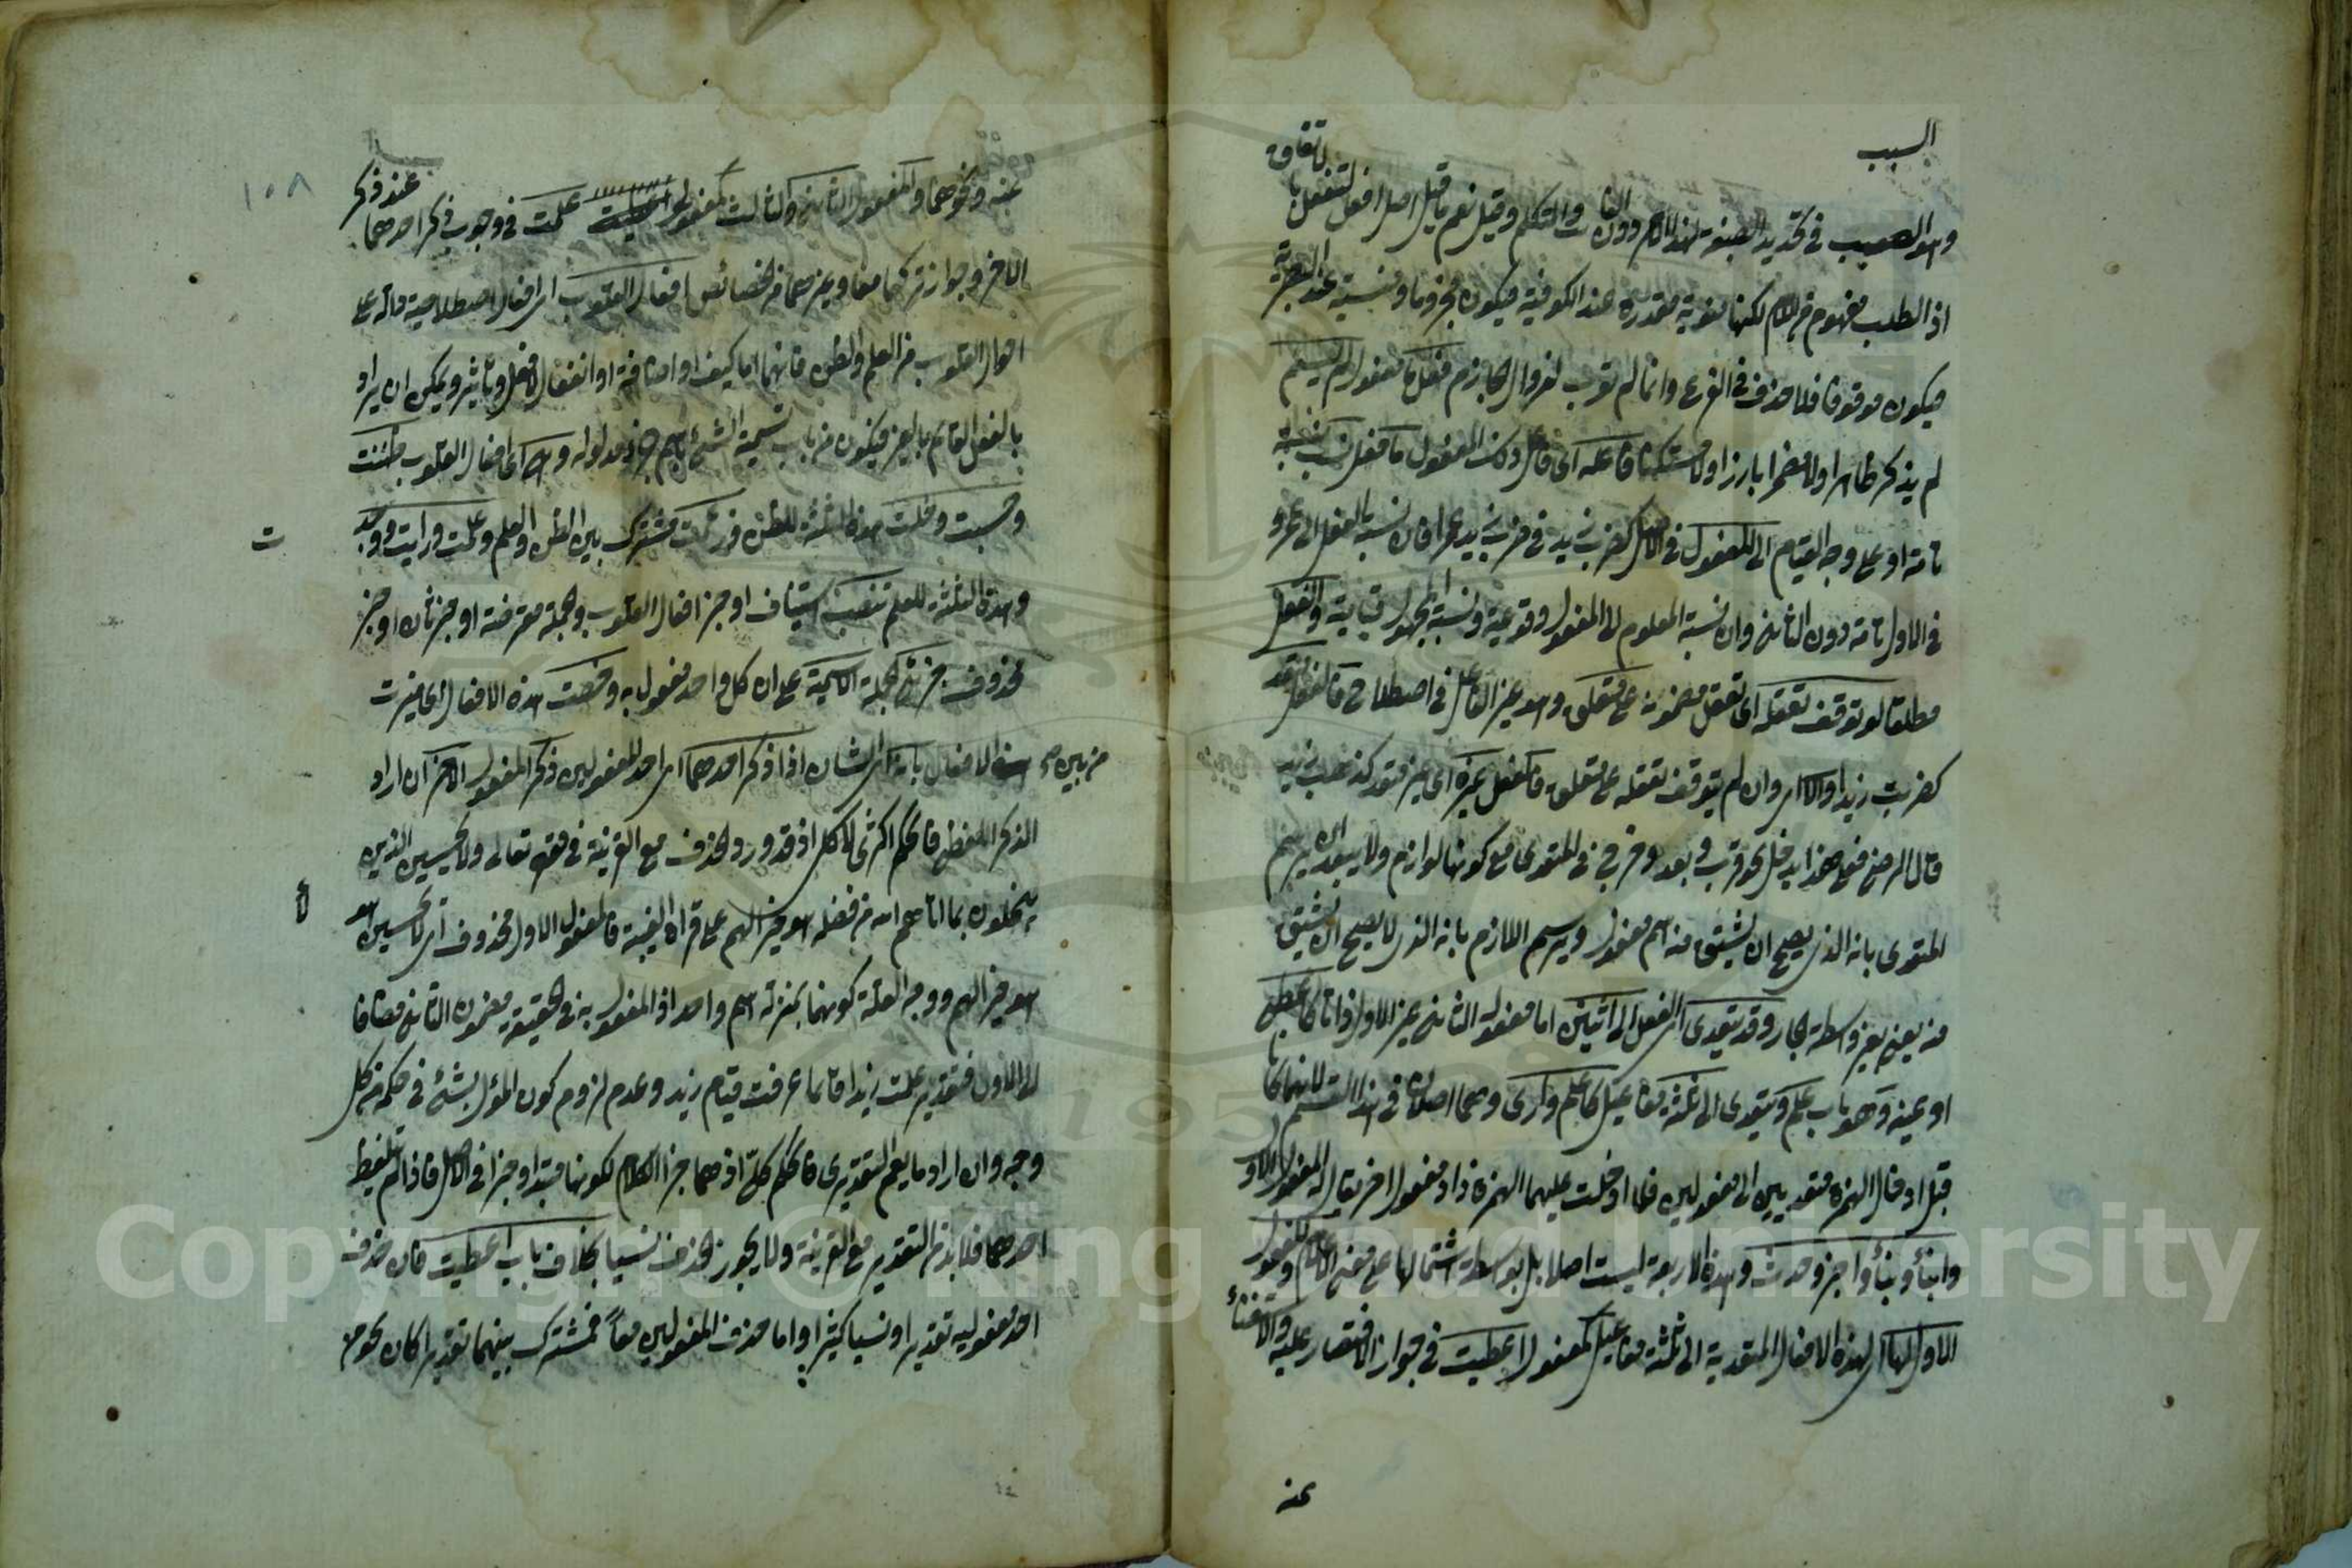 السبب
وهو السبب في تحديد الصيغة لهذا الامر دون الغائب والمتكلم وقيل نعم ما قيل اصل افعل لتفعل باتفاق
اذ الطلب مفهوم من اللام لكنها منوية مقدرة عند الكوفية فيكون مجزوما ومنسية عند البصرية
فيكون موقوفا فلا حذف في الفرع وانما لم يعرب لزوال الجازم فعل ما مفعول لم يسم
لم يذكر ظاهرا ولا مضمرا بارزا ولا مستكنا فاعله اى فاعل ذلك المفعول ما فعل نسب نسبة
تامة او على وجه القيام الى المفعول في الاصل كضرب زيد في ضرب زيد عمرا فان نسبة الفعل الى عمرو
في الاول تامة دون الثاني وان نسبة المعلوم الى المفعول وقوعية ونسبة المجهول قيامية والفعل
مطلقا لو توقف تعقله اى تعقل مضمونه على متعلق وهو غير الفاعل في اصطلاحهم فالفعل متعد
كضربت زيدا والا اى وان لم يتوقف تعقله على متعلق فالفعل غيره اى غير متعد كذهب زيد
قال الرضي فعلى هذا يدخل نحو قرب وبعد وخرج في المتعدى مع كونها لوازم ولا يبعد ان يرسم
المتعدى بانه الذى يصح ان يشتق منه اسم مفعول ويرسم اللازم بانه الذى لا يصح ان يشتق
منه يعنى بغير واسطة الجار وقد يتعدى اى الفعل الى اثنين اما مفعوله الثاني غير الاول ذاتا كاعطى
او عينه وهو باب علم ويتعدى الى ثلثة مفاعيل كاعلم وارى وهما اصلان في هذا القسم لانهما كانا
قبل ادخال الهمزة متعديين الى مفعولين فلما ادخلت عليهما الهمزة زاد مفعول آخر يقال له المفعول الاول
وانبأ ونبأ واخبر وحدث وهذه الاربعة ليست اصلا بل بواسطة اشتمالها على معنى الاعلام والمفعول
الاول لها اى لهذه الافعال المتعدية الى ثلثة مفاعيل كمفعول اعطيت في جواز الاقتصار عليه والاستغناء
عنه
١٠٨
عنه ونحوهما والمفعول الثاني والثالث كمفعولى علمت في وجوب ذكر احدهما عند ذكر
الاخر وجواز تركهما معا وغيرهما من خصائص افعال القلوب اى افعال اصطلاحية دالة على
احوال القلوب من العلم والظن فانهما اما كيف او اضافة او انفعال لا فعل وتأثير ويمكن ان يراد
بالفعل القائم بالغير فيكون من باب تسمية الشئ باسم جزء مدلوله وهى اى افعال القلوب ظننت
وحسبت وخلت هذه الثلثة للظن وزعمت مشترك بين الظن والعلم وعلمت ورايت ووجدت
وهذه الثلثة للعلم تنصب استيناف او خبر افعال القلوب والجملة معترضة او خبر ثان او خبر
محذوف جزئى الجملة الاسمية على ان كل واحد مفعول به وخصت هذه الافعال اى ميزت
من بين سائر الافعال بانه اى الشان اذا ذكر احدهما اى احد المفعولين ذكر المفعول الاخر ان اراد
الذكر اللفظى فالحكم اكثرى لا كلى اذ قد ورد الحذف مع القرينة في قوله تعالى ولا يحسبن الذين
يبخلون بما اتاهم الله من فضله هو خيرا لهم على قراءة الغيبة فالمفعول الاول محذوف اى لا يحسبن هؤلاء
هو خيرا لهم ووجه العلة كونهما بمنزلة اسم واحد اذ المفعول به في الحقيقة مضمون الثاني مضافا
الى الاول فتقدير علمت زيدا قائما عرفت قيام زيد وعدم لزوم كون المؤل بشئ في حكمه من كل
وجه وان اراد ما يعم التقديرى فالحكم كلى اذ هما جزءا الكلام لكونهما مبتدا وخبرا في الاصل فاذا لم يلفظ
احدهما فلا بد من التقدير مع القرينة ولا يجوز الحذف نسيا بخلاف باب اعطيت فان حذف
احد مفعوليه تقديرا ونسيا كثيرا واما حذف المفعولين معا فمشترك بينهما تقديرا كان نحو من